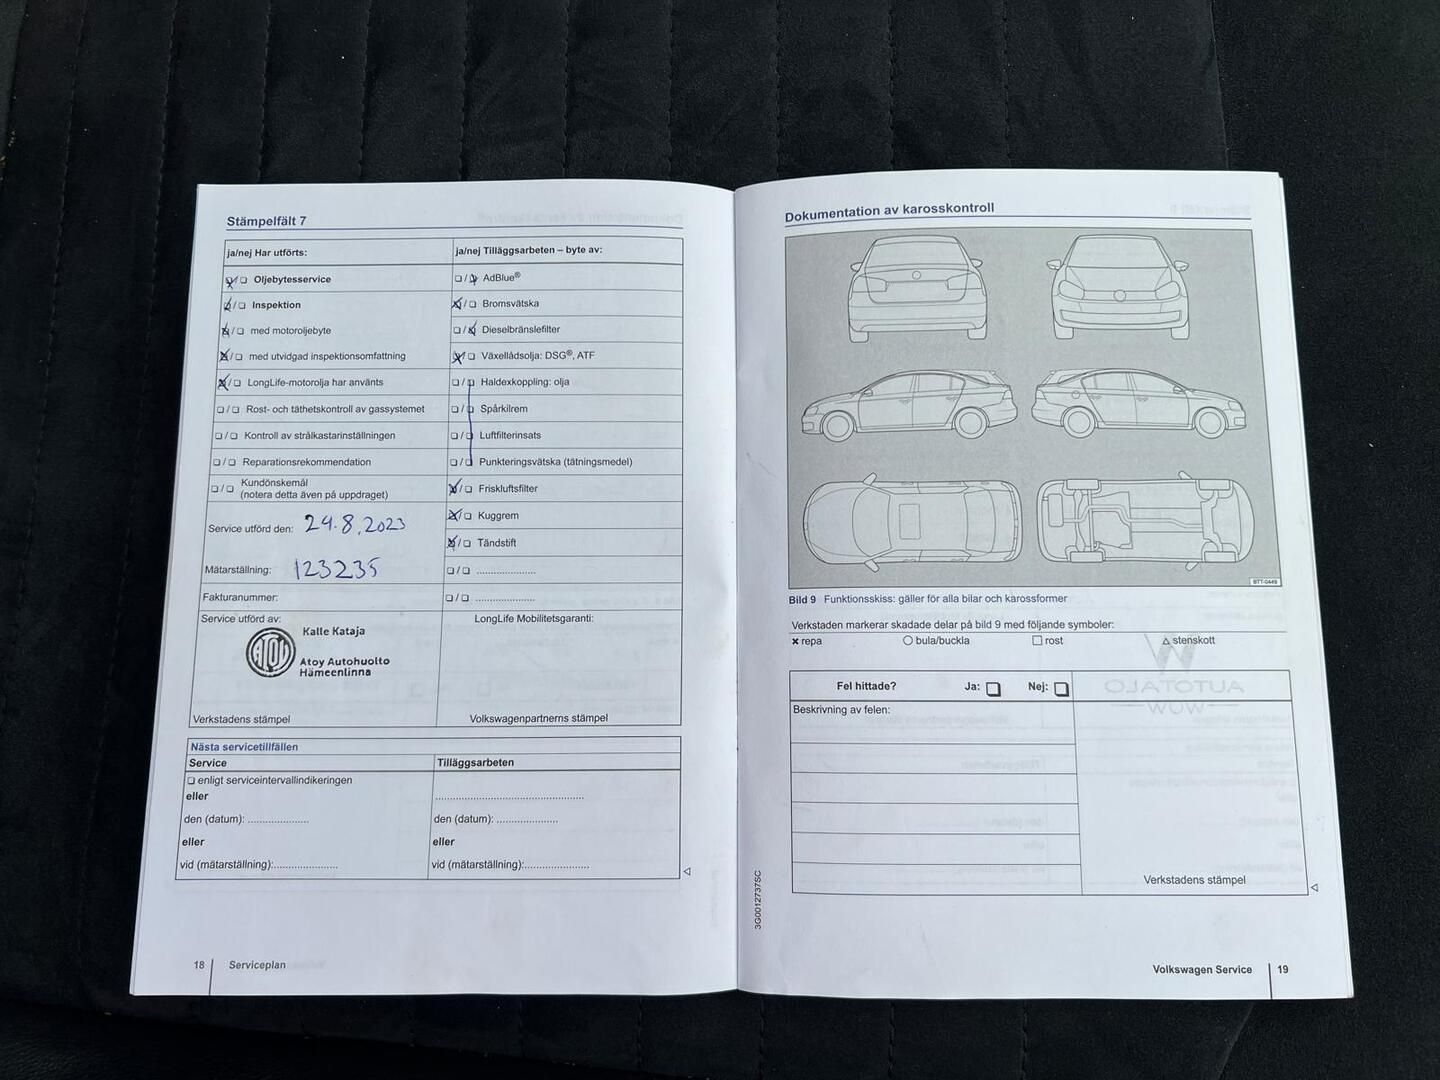 Stämpelfält 7
ja/nej Har utförts:
ja/nej Tilläggsarbeten – byte av:
Oljebytesservice
❏ / AdBlue®
Inspektion
Bromsvätska
med motoroljebyte
Dieselbränslefilter
med utvidgad inspektionsomfattning
Växellådsolja: DSG®, ATF
LongLife-motorolja har använts
Haldexkoppling: olja
❏ / ❏ Rost- och täthetskontroll av gassystemet
Spårkilrem
❏ / ❏ Kontroll av strålkastarinställningen
Luftfilterinsats
❏ / ❏ Reparationsrekommendation
Punkteringsvätska (tätningsmedel)
❏ / ❏ Kundönskemål
(notera detta även på uppdraget)
Friskluftsfilter
Service utförd den: 24.8.2023
Kuggrem
Tändstift
Mätarställning: 123235
❏ / ❏ .....................
Fakturanummer:
❏ / ❏ .....................
Service utförd av:
LongLife Mobilitetsgaranti:
Kalle Kataja
ATOY
Atoy Autohuolto
Hämeenlinna
Verkstadens stämpel
Volkswagenpartnerns stämpel
Nästa servicetillfällen
Service
Tilläggsarbeten
❏ enligt serviceintervallindikeringen
eller
den (datum): .....................
den (datum): .....................
eller
eller
vid (mätarställning):.....................
vid (mätarställning):.....................
18 Serviceplan
Dokumentation av karosskontroll
BTT-0449
Bild 9 Funktionsskiss: gäller för alla bilar och karossformer
Verkstaden markerar skadade delar på bild 9 med följande symboler:
× repa
○ bula/buckla
□ rost
△ stenskott
Fel hittade? Ja: ❏ Nej: ❏
Beskrivning av felen:
Verkstadens stämpel
3G0012737SC
Volkswagen Service 19